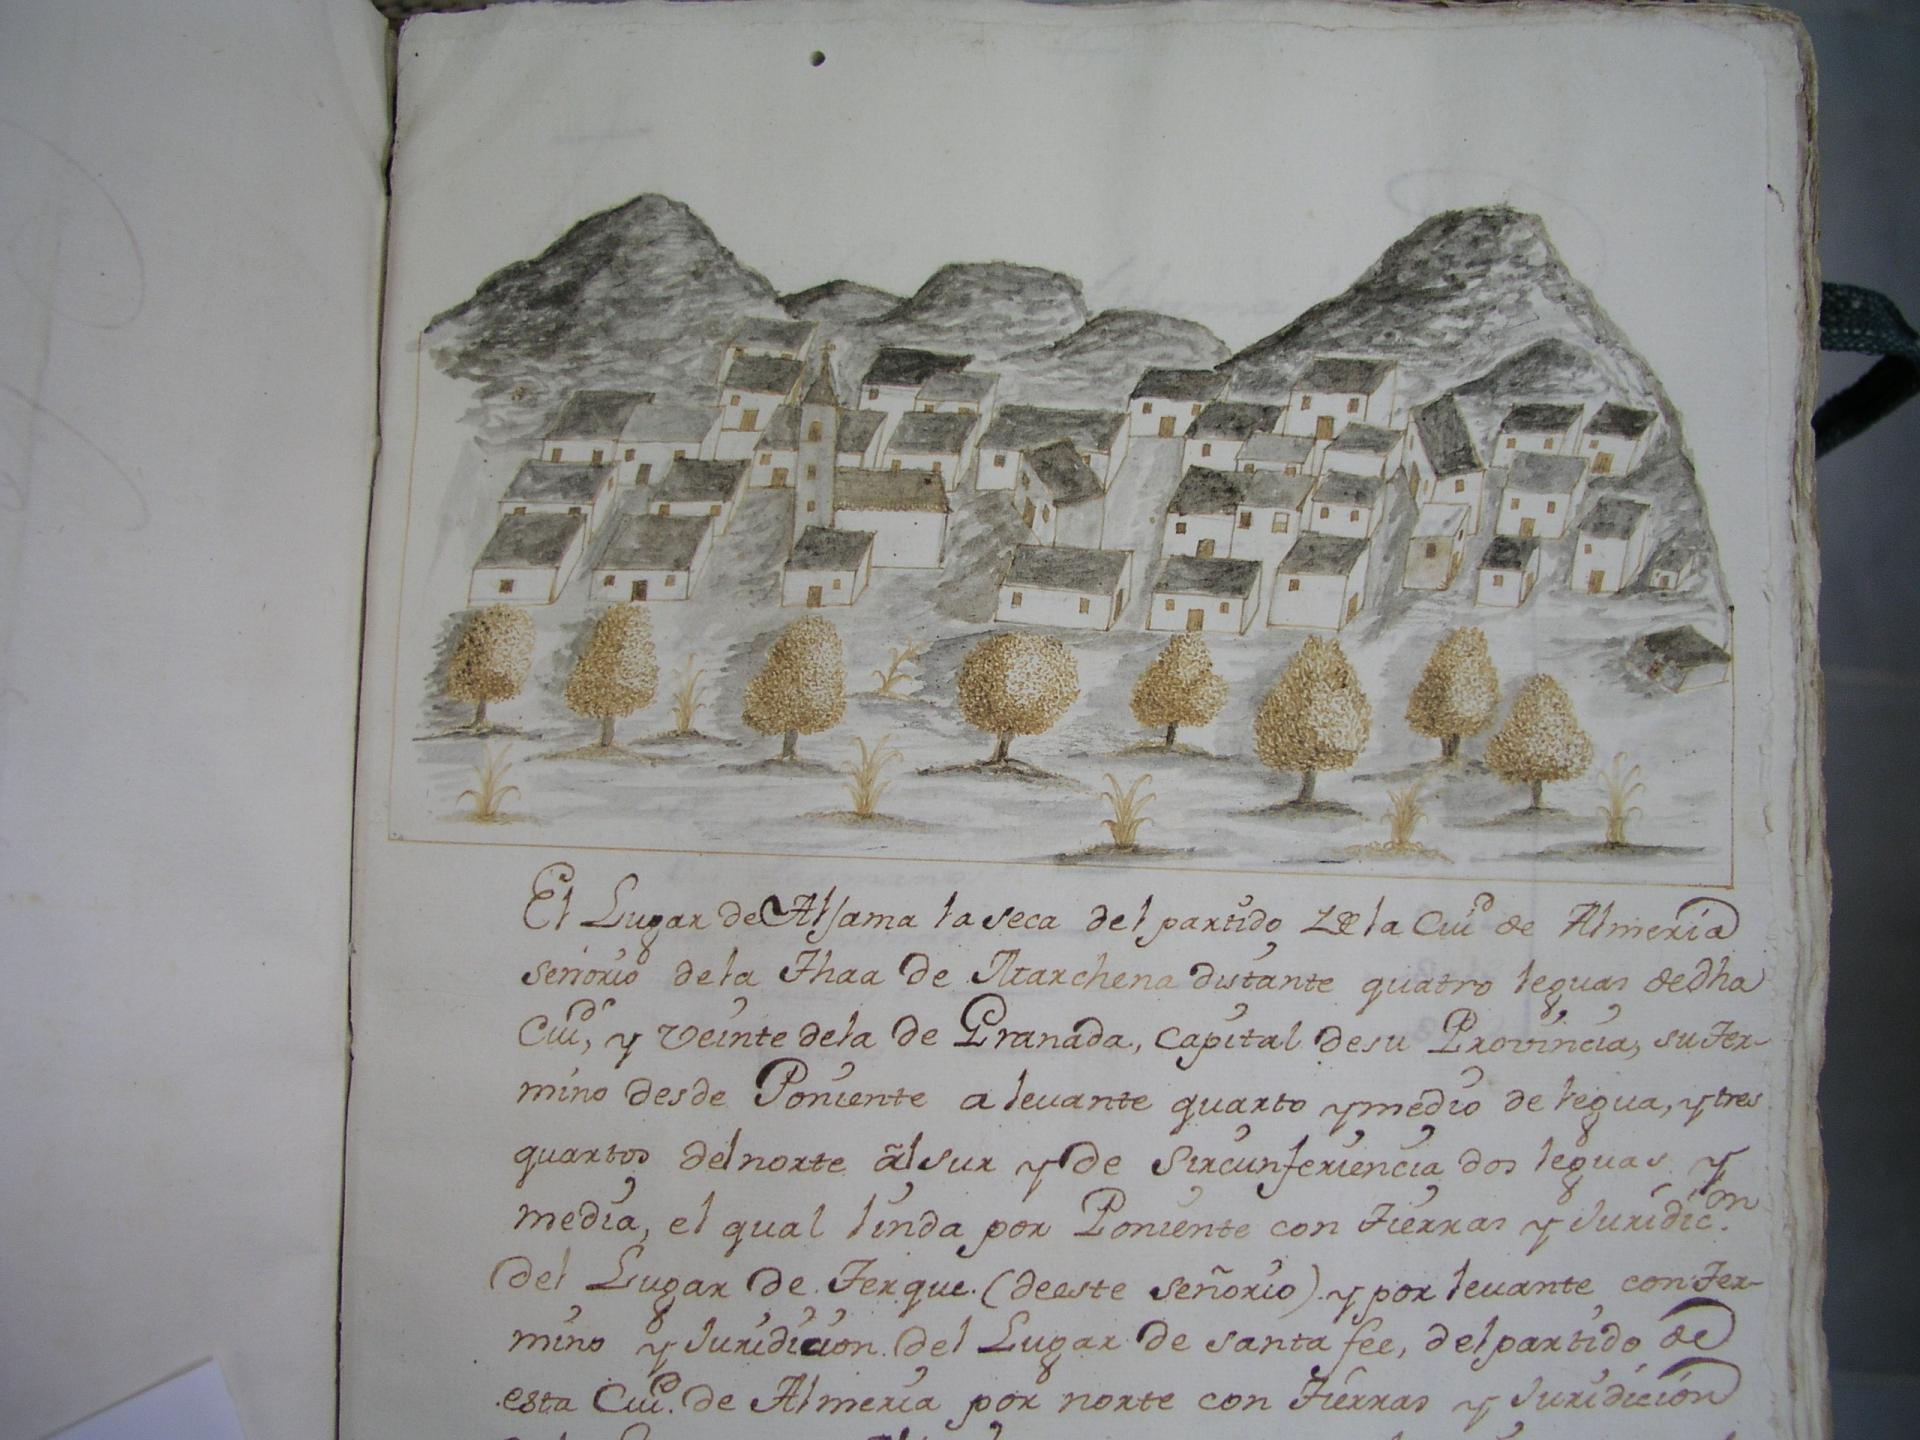 El Lugar de Alhama la seca del partido de la Ciu.d de Almeria
señorio de la Thaa de Marchena distante quatro leguas de dha
Ciu.d, y veinte de la de Granada, Capital de su Provincia, su Ter-
mino desde Poniente a levante quarto y medio de legua, y tres
quartos del norte âl sur y de Sircunferiencia dos leguas y
media, el qual linda por Poniente con Tierras y Juridic.on
del Lugar de Terque (de este señorio) y por levante con Ter-
mino y Juridicion del Lugar de Santa fee, del partido de
esta Ciu.d de Almeria por norte con Tierras y Juridicion